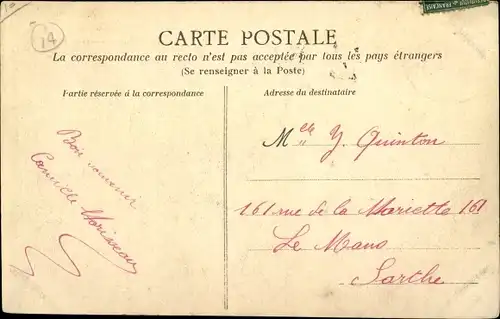 14
CARTE POSTALE
La correspondance au recto n'est pas acceptée par tous les pays étrangers
(Se renseigner à la Poste)
Partie réservée à la correspondance
Adresse du destinataire
Bon souvenir
Camille
Melle Y. Quinton
161 rue de la Mariette 161
Le Mans
Sarthe